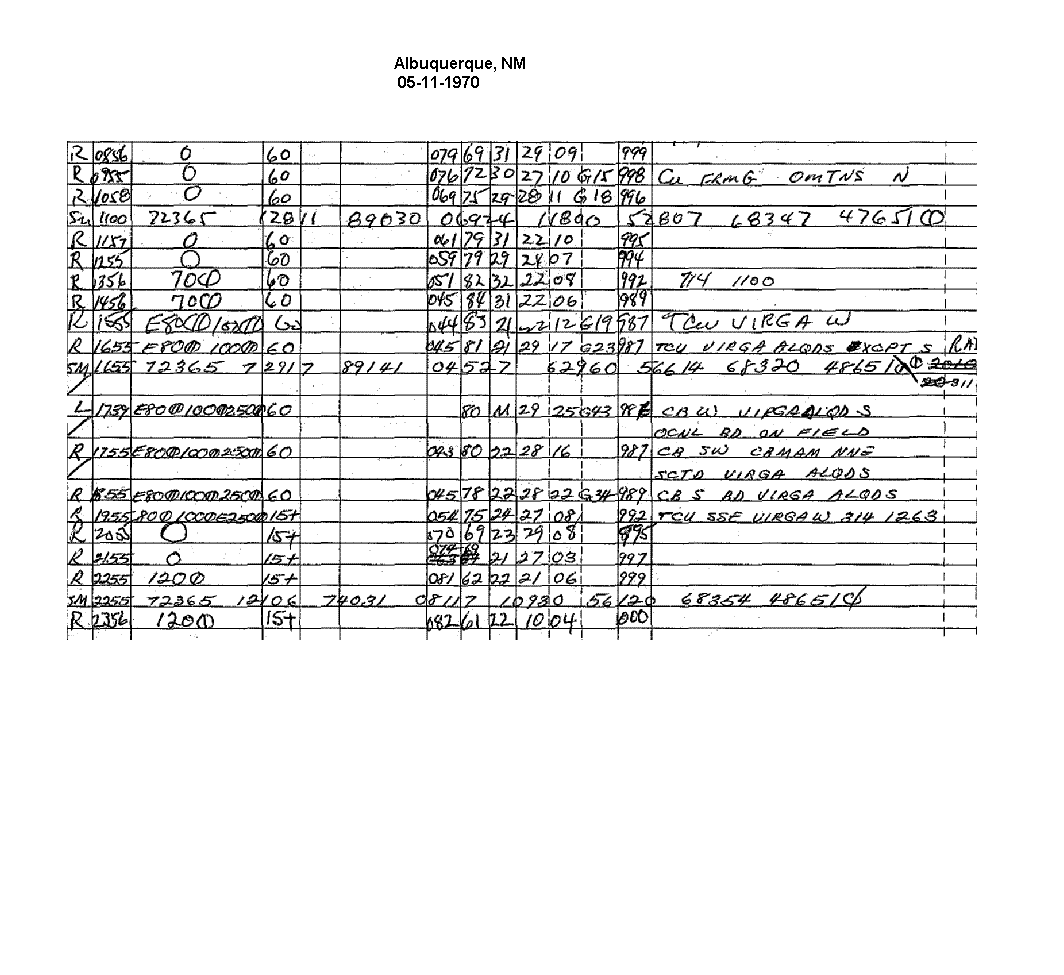 Albuquerque, NM
05-11-1970
R 0856 O 60 079 69 31 29 09 999
R 0955 O 60 076 72 30 27 10 G15 998 CU FRMG OMTNS N
R 1058 O 60 069 75 29 28 11 G18 996
SM 1100 72365 12811 89030 06924 11800 52807 68347 47651
R 1157 O 60 061 79 31 22 10 995
R 1255 O 60 059 79 29 24 07 994
R 1356 70⦶ 60 051 82 32 22 08 992 714 1100
R 1456 70⦶ 60 045 84 31 22 06 989
R 1555 E80⦶ 60 044 83 21 12 G19 987 TCU VIRGA W
R 1655 E80⦶ 100⦶ 60 045 81 21 29 17 G23 987 TCU VIRGA ALQDS EXCPT S
SM 1655 72365 72917 89141 04527 62960 56614 68320 48651
L 1739 E80⦶100⦶250⦶ 60 80 M 29 25 G43 CB W VIRGA ALQDS
OCNL BD ON FIELD
R 1755 E80⦶100⦶250⦶ 60 043 80 22 28 16 987 CB SW CBMAM NNE
SCTD VIRGA ALQDS
R 1855 E80⦶100⦶250⦶ 60 045 78 22 28 22 G34 989 CB S BD VIRGA ALQDS
R 1955 80⦶100⦶E250⦶ 15+ 054 75 24 27 08 992 TCU SSE VIRGA W 314 1263
R 2055 O 15+ 070 69 23 29 08 995
R 2155 O 15+ 074 69 21 27 03 997
R 2255 120⦶ 15+ 081 62 22 21 06 999
SM 2255 72365 12106 74031 08117 10930 56120 68354 48651
R 2356 120⦶ 15+ 082 61 22 10 04 000